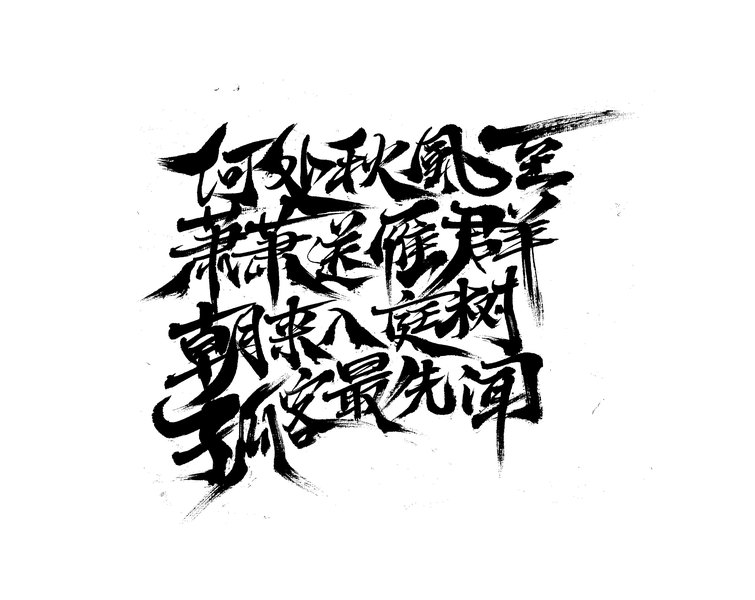 何处秋风至
萧萧送雁群
朝来入庭树
孤客最先闻